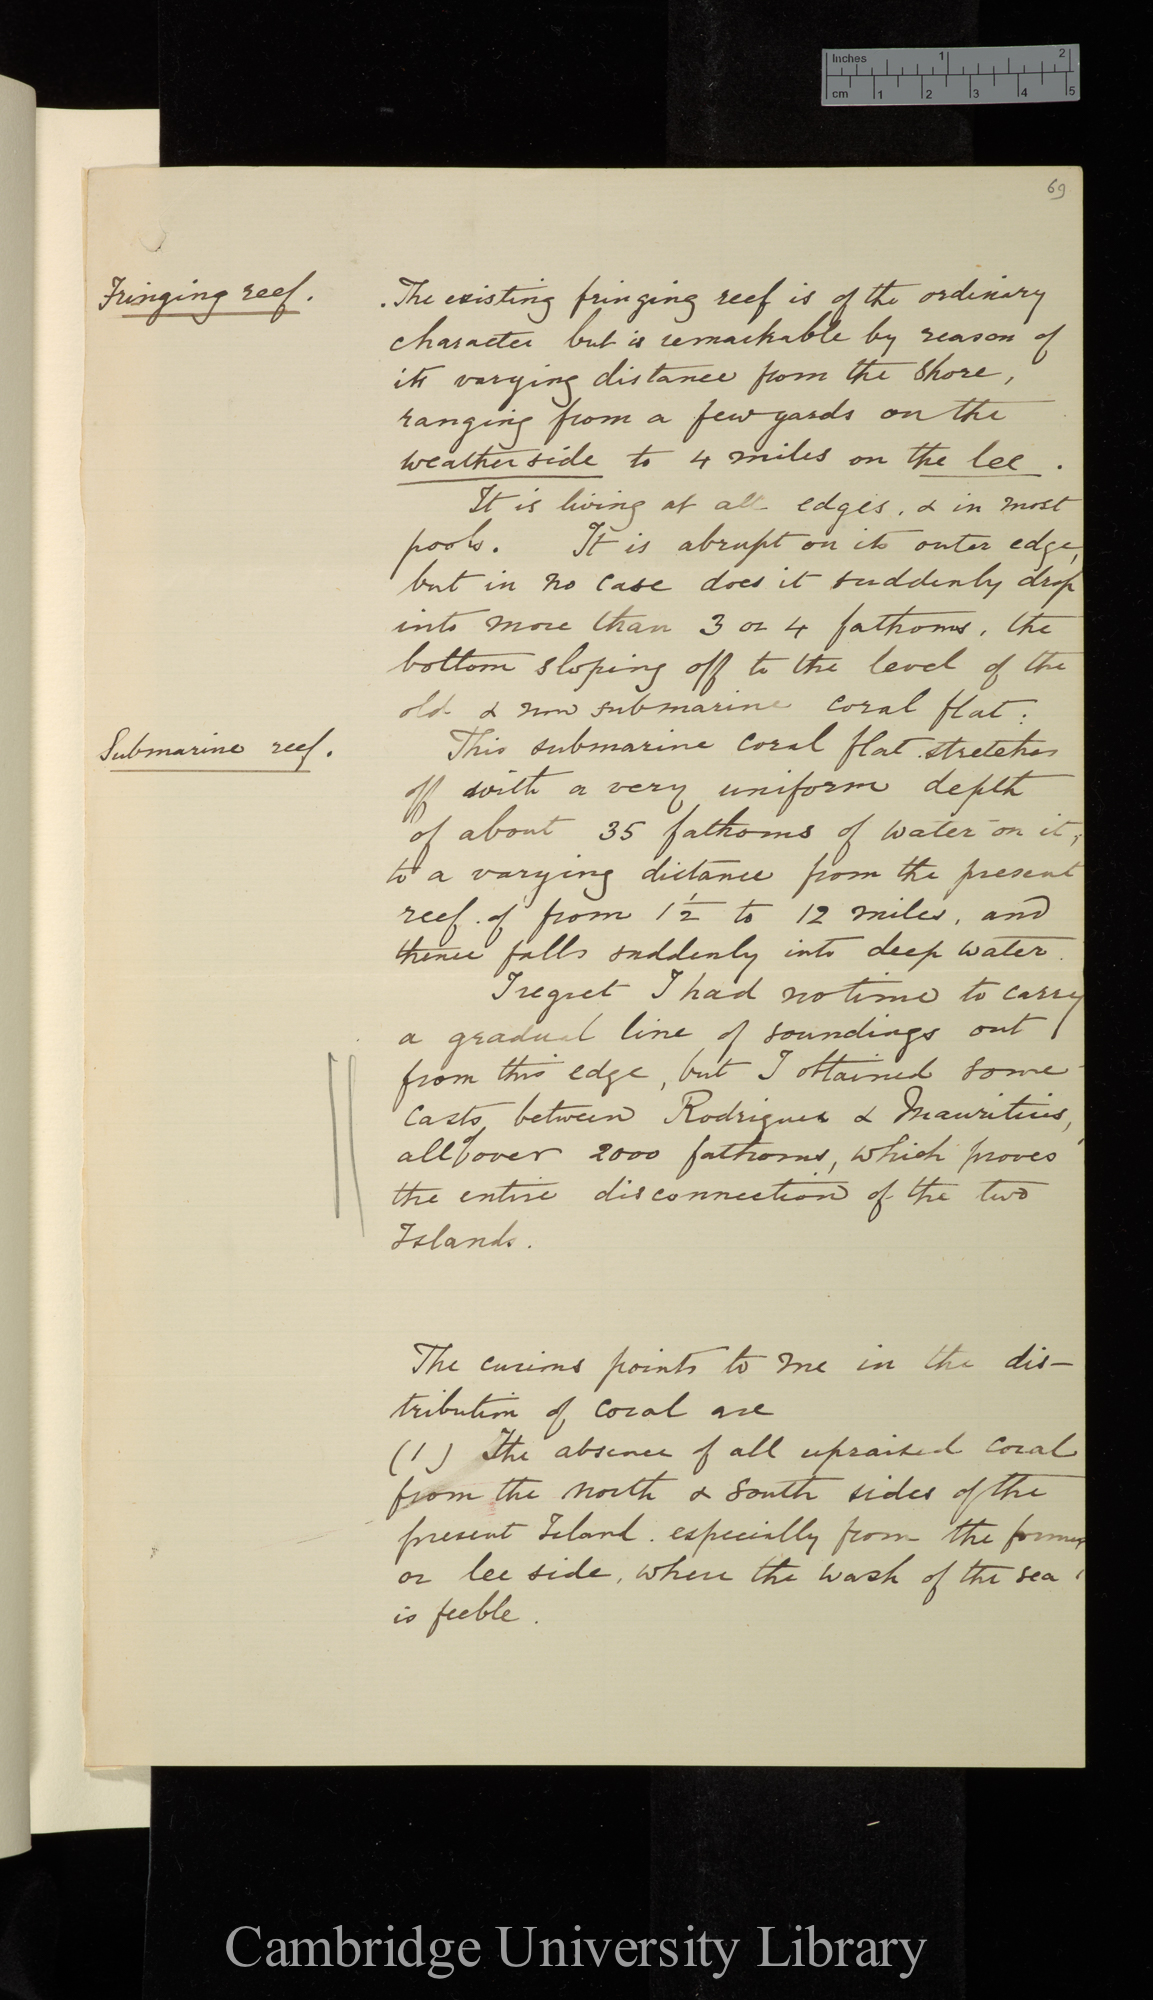 Inches 1 2
cm 1 2 3 4 5
69
Fringing reef.
The existing fringing reef is of the ordinary
character but is remarkable by reason of
its varying distance from the Shore,
ranging from a few yards on the
weather side to 4 miles on the lee.
It is living at all edges, & in most
pools. It is abrupt on its outer edge,
but in no case does it suddenly drop
into more than 3 or 4 fathoms, the
bottom sloping off to the level of the
old & now submarine coral flat:
Submarine reef.
This submarine coral flat stretches
off with a very uniform depth
of about 35 fathoms of water on it,
to a varying distance from the present
reef of from 1½ to 12 miles, and
thence falls suddenly into deep water.
I regret I had no time to carry
a gradual line of soundings out
from this edge, but I obtained some
casts, between Rodriguez & Mauritius,
all of over 2000 fathoms, which proves
the entire disconnection of the two
Islands.
The curious points to me in the dis-
tribution of coral are
(1) The absence of all upraised coral
from the north & South sides of the
present Island. especially from the former
or lee side, where the wash of the sea
is feeble.
Cambridge University Library